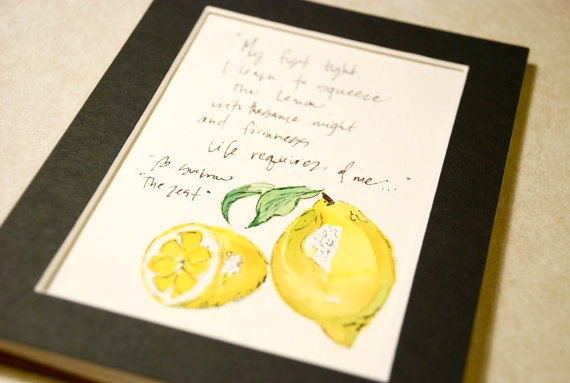 "My fist tight.
I learn to squeeze
the lemon
with the same might
and firmness
life requires of me..."
"The Zest"